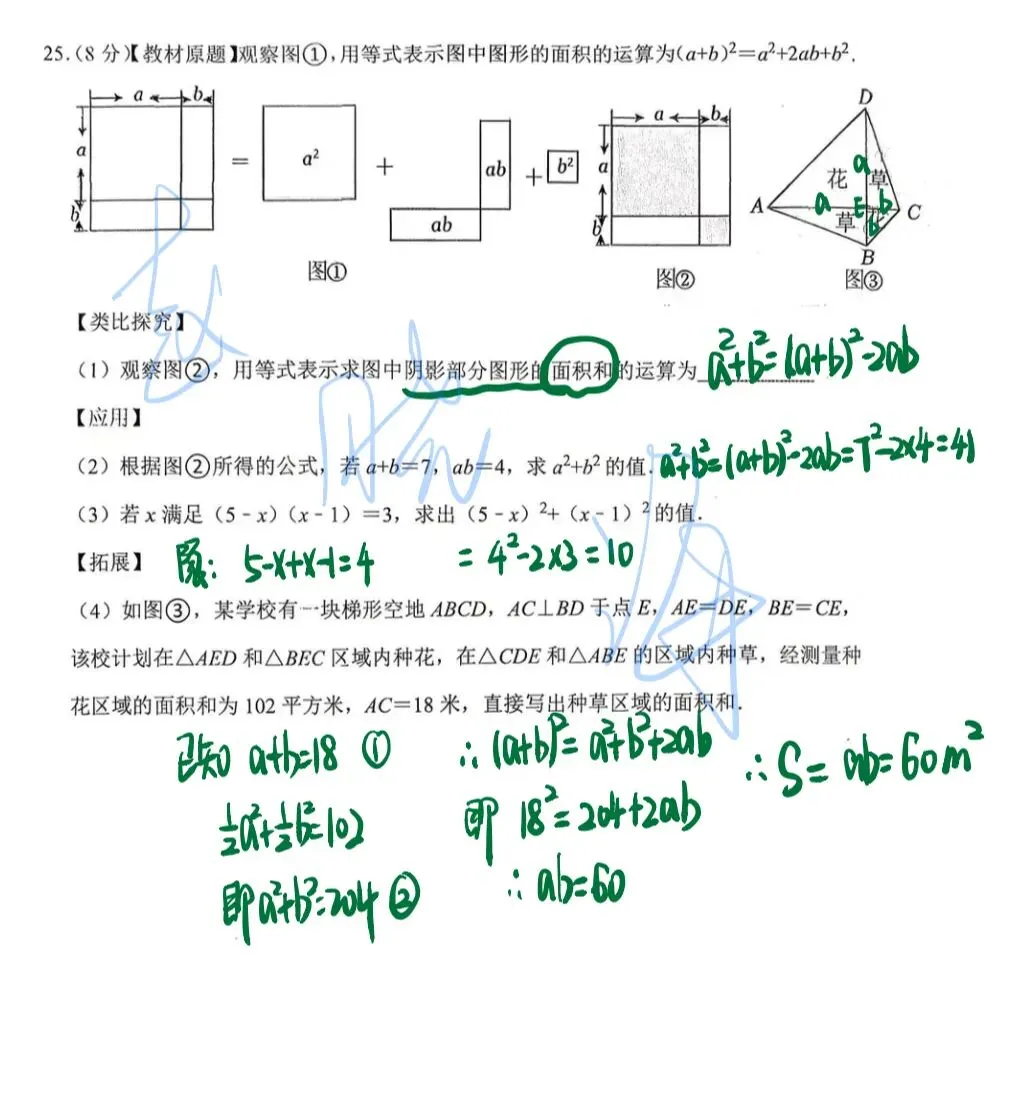 25.(8分)【教材原题】观察图①,用等式表示图中图形的面积的运算为(a+b)²=a²+2ab+b².
a b a b
a b = a² + ab ab + b² a b
D A 花 草 a a E b C 草 花 b B
图① 图② 图③
【类比探究】
(1)观察图②,用等式表示求图中阴影部分图形的面积和的运算为 a²+b²=(a+b)²-2ab
【应用】
(2)根据图②所得的公式,若a+b=7,ab=4,求a²+b²的值. a²+b²=(a+b)²-2ab=7²-2×4=41
(3)若x满足(5-x)(x-1)=3,求出(5-x)²+(x-1)²的值.
【拓展】 : 5-x+x-1=4 =4²-2×3=10
(4)如图③,某学校有一块梯形空地ABCD,AC⊥BD于点E,AE=DE,BE=CE,
该校计划在△AED和△BEC区域内种花,在△CDE和△ABE的区域内种草,经测量种
花区域的面积和为102平方米,AC=18米,直接写出种草区域的面积和.
已知 a+b=18 ① ∴(a+b)²=a²+b²+2ab ∴S=ab=60m²
½a²+½b²=102 即 18²=204+2ab
即a²+b²=204 ② ∴ab=60